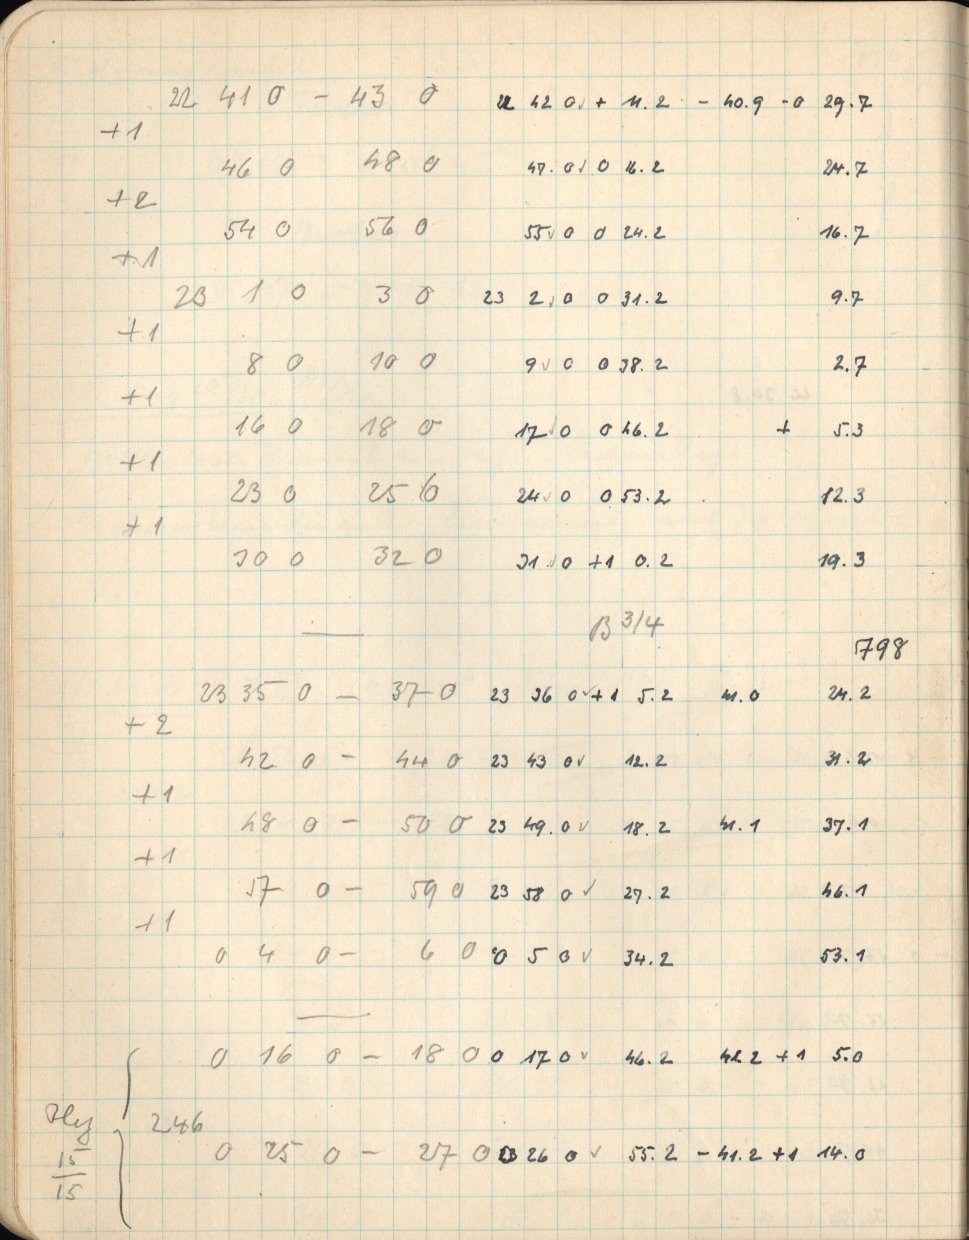 22 41 0 - 43 0 22 42 0 √ + 11.2 - 40.9 - 0 29.7
+1
46 0 48 0 47. 0 √ 0 16.2 24.7
+2
54 0 56 0 55 √ 0 0 24.2 16.7
+1
23 1 0 3 0 23 2 √ 0 0 31.2 9.7
+1
8 0 10 0 9 √ 0 0 38.2 2.7
+1
16 0 18 0 17 √ 0 0 46.2 + 5.3
+1
23 0 25 0 24 √ 0 0 53.2 12.3
+1
30 0 32 0 31 √ 0 +1 0.2 19.3
β 3/4
798
23 35 0 - 37 0 23 36 0 √ +1 5.2 41.0 24.2
+2
42 0 - 44 0 23 43 0 √ 12.2 31.2
+1
48 0 - 50 0 23 49. 0 √ 18.2 41.1 37.1
+1
57 0 - 59 0 23 58 0 √ 27.2 46.1
+1
0 4 0 - 6 0 0 5 0 √ 34.2 53.1
0 16 0 - 18 0 0 17 0 √ 46.2 41.2 +1 5.0
246
15
15
0 25 0 - 27 0 0 26 0 √ 55.2 - 41.2 +1 14.0